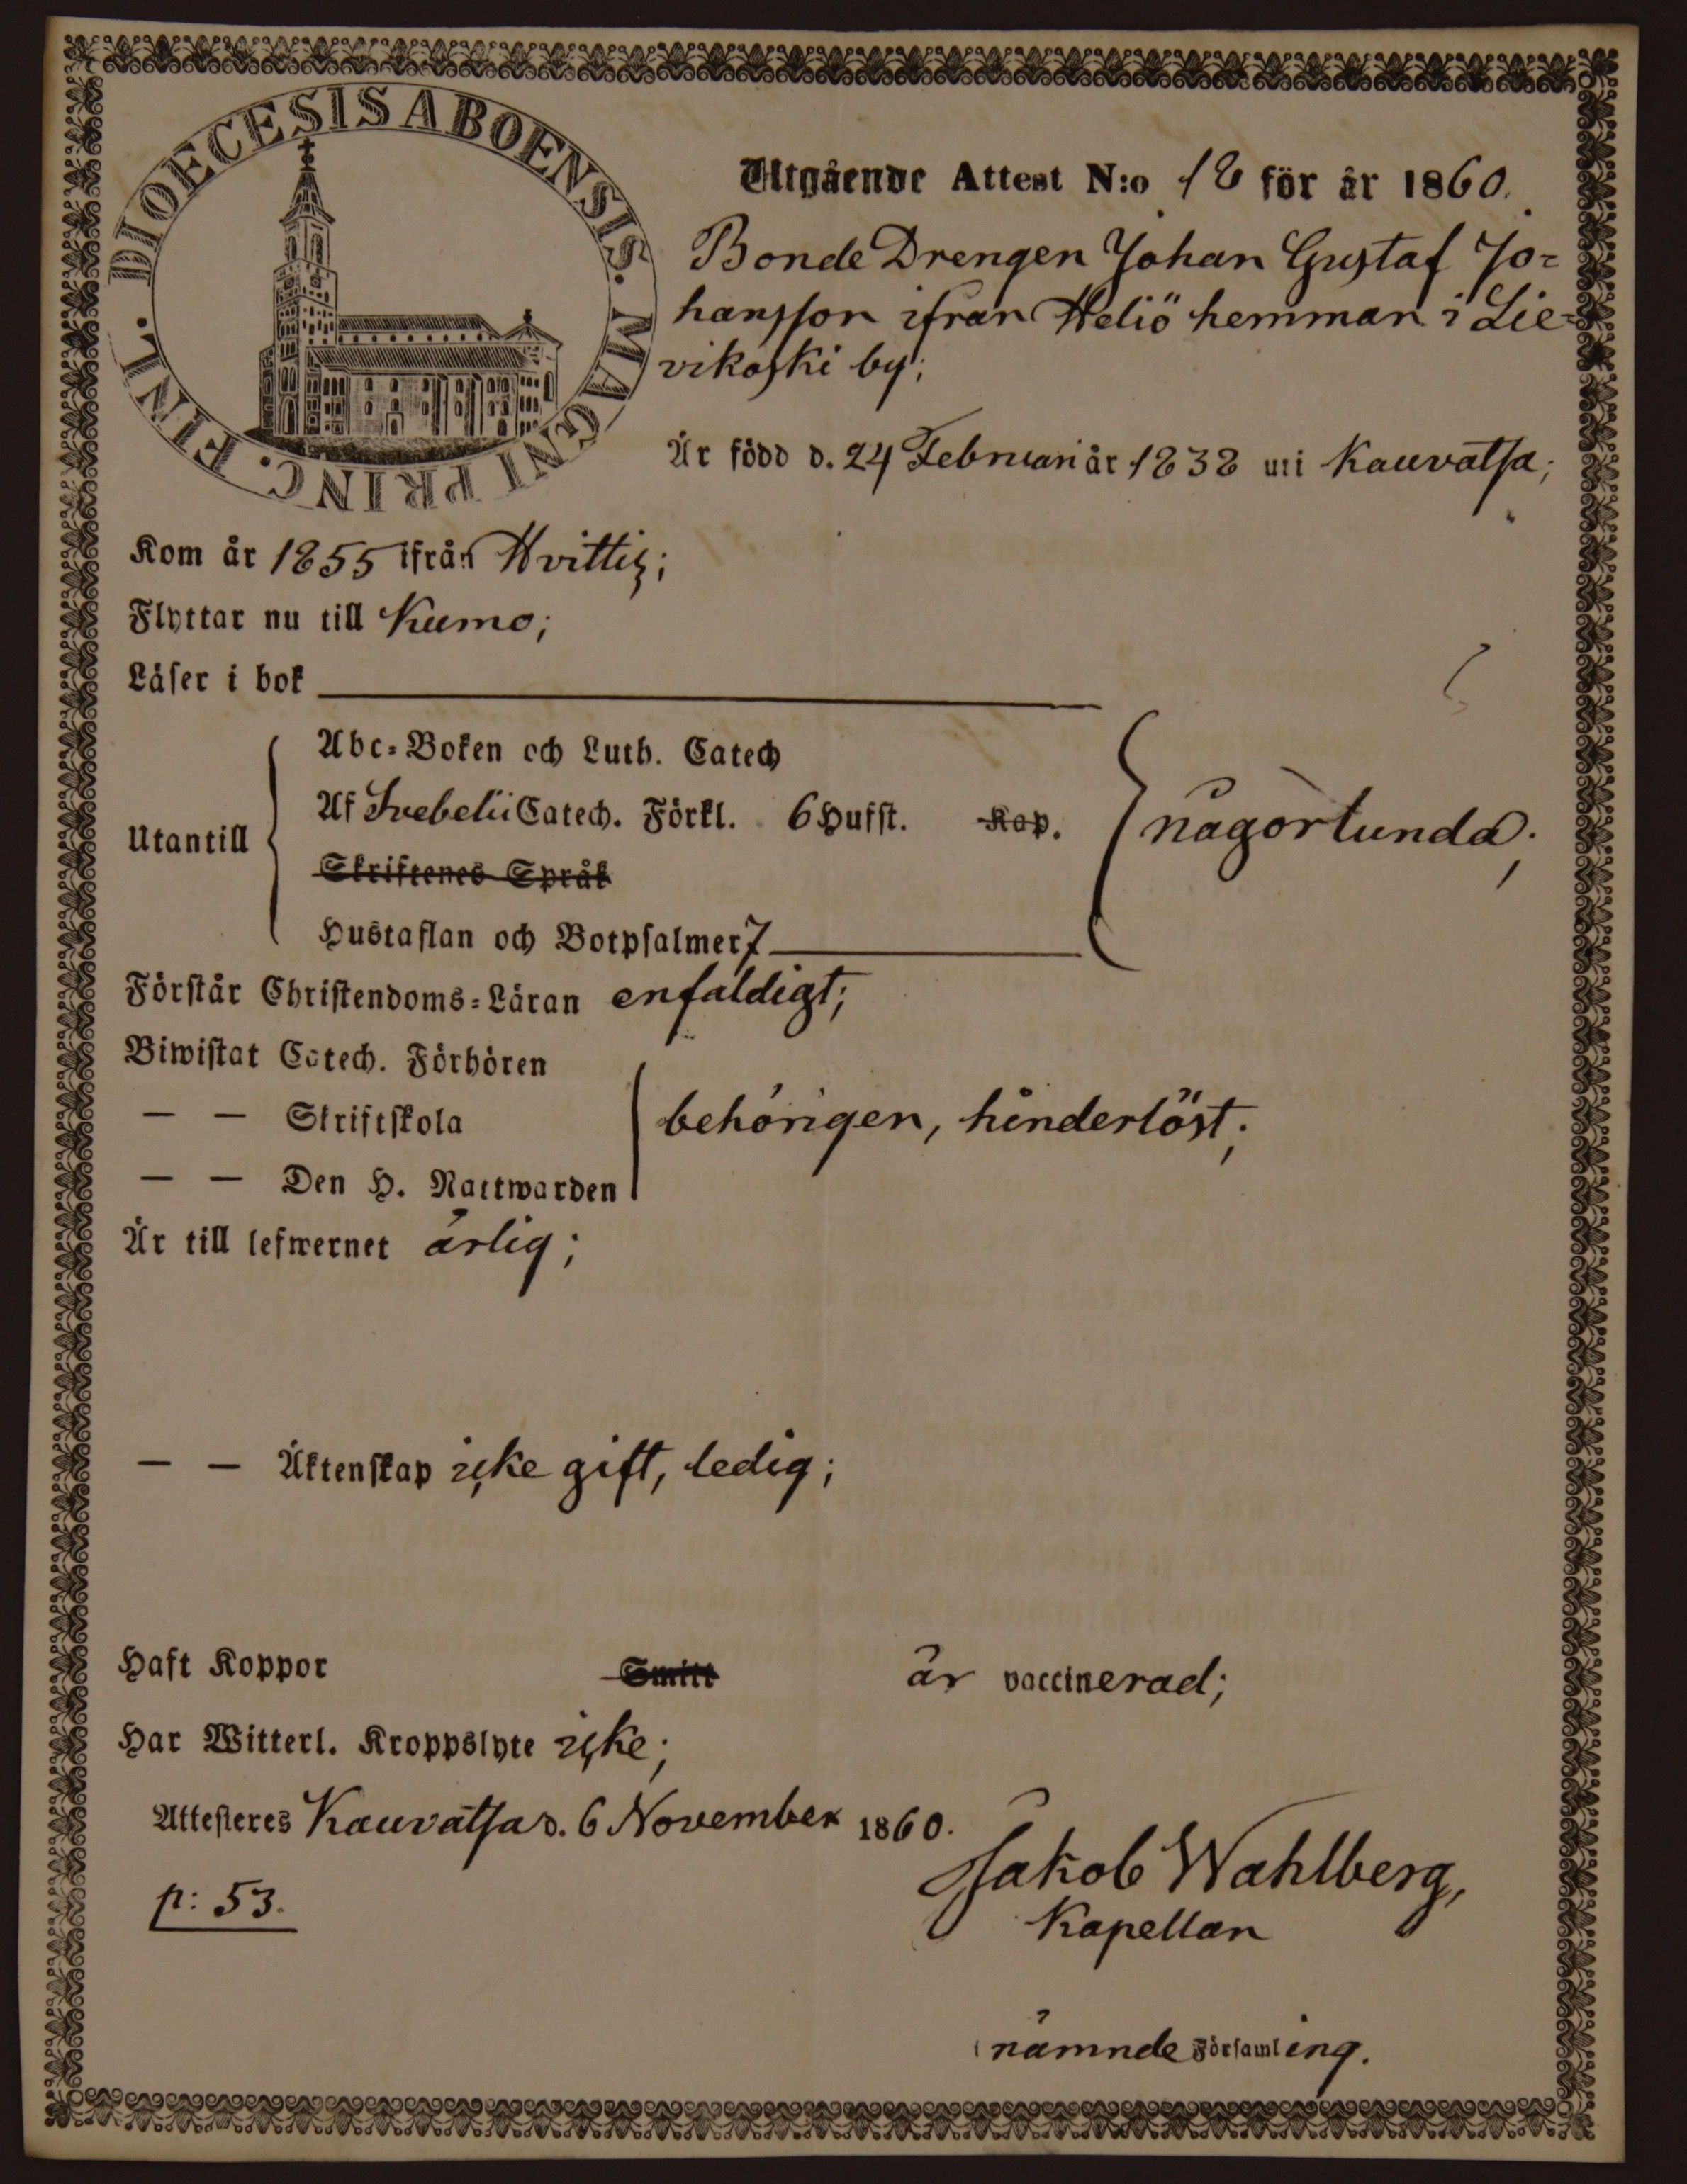 DIOECESIS ABOENSIS. MAGNI PRINC. FINL.
Utgående Attest N:o 18 för år 1860.
Bonde Drengen Johan Gustaf Jo=
hansson ifrån Heliö hemman i Lie=
vikoski by;
Är född d. 24 Februari år 1838 uti Kauvatsa;
Kom år 1855 ifrån Hvittis;
Flyttar nu till Kumo;
Läser i bok
Abc=Boken och Luth. Catech
Af Svebelii Catech. Förkl. 6 Hufst. Kap.
Utantill någorlunda;
Skriftenes Språk
Hustaflan och Botpsalmer 7
Förstår Christendoms=Läran enfaldigt;
Biwistat Catech. Förhören
— — Skriftskola behörigen, hinderlöst;
— — Den H. Nattwarden
Är till lefwernet ärlig;
— — Äktenskap icke gift, ledig;
Haft Koppor Smitt är vaccinerad;
Har Witterl. Kroppslyte icke;
Attesteres Kauvatsa d. 6 November 1860.
p: 53.
Jakob Wahlberg,
Kapellan
i nämnde Församling.